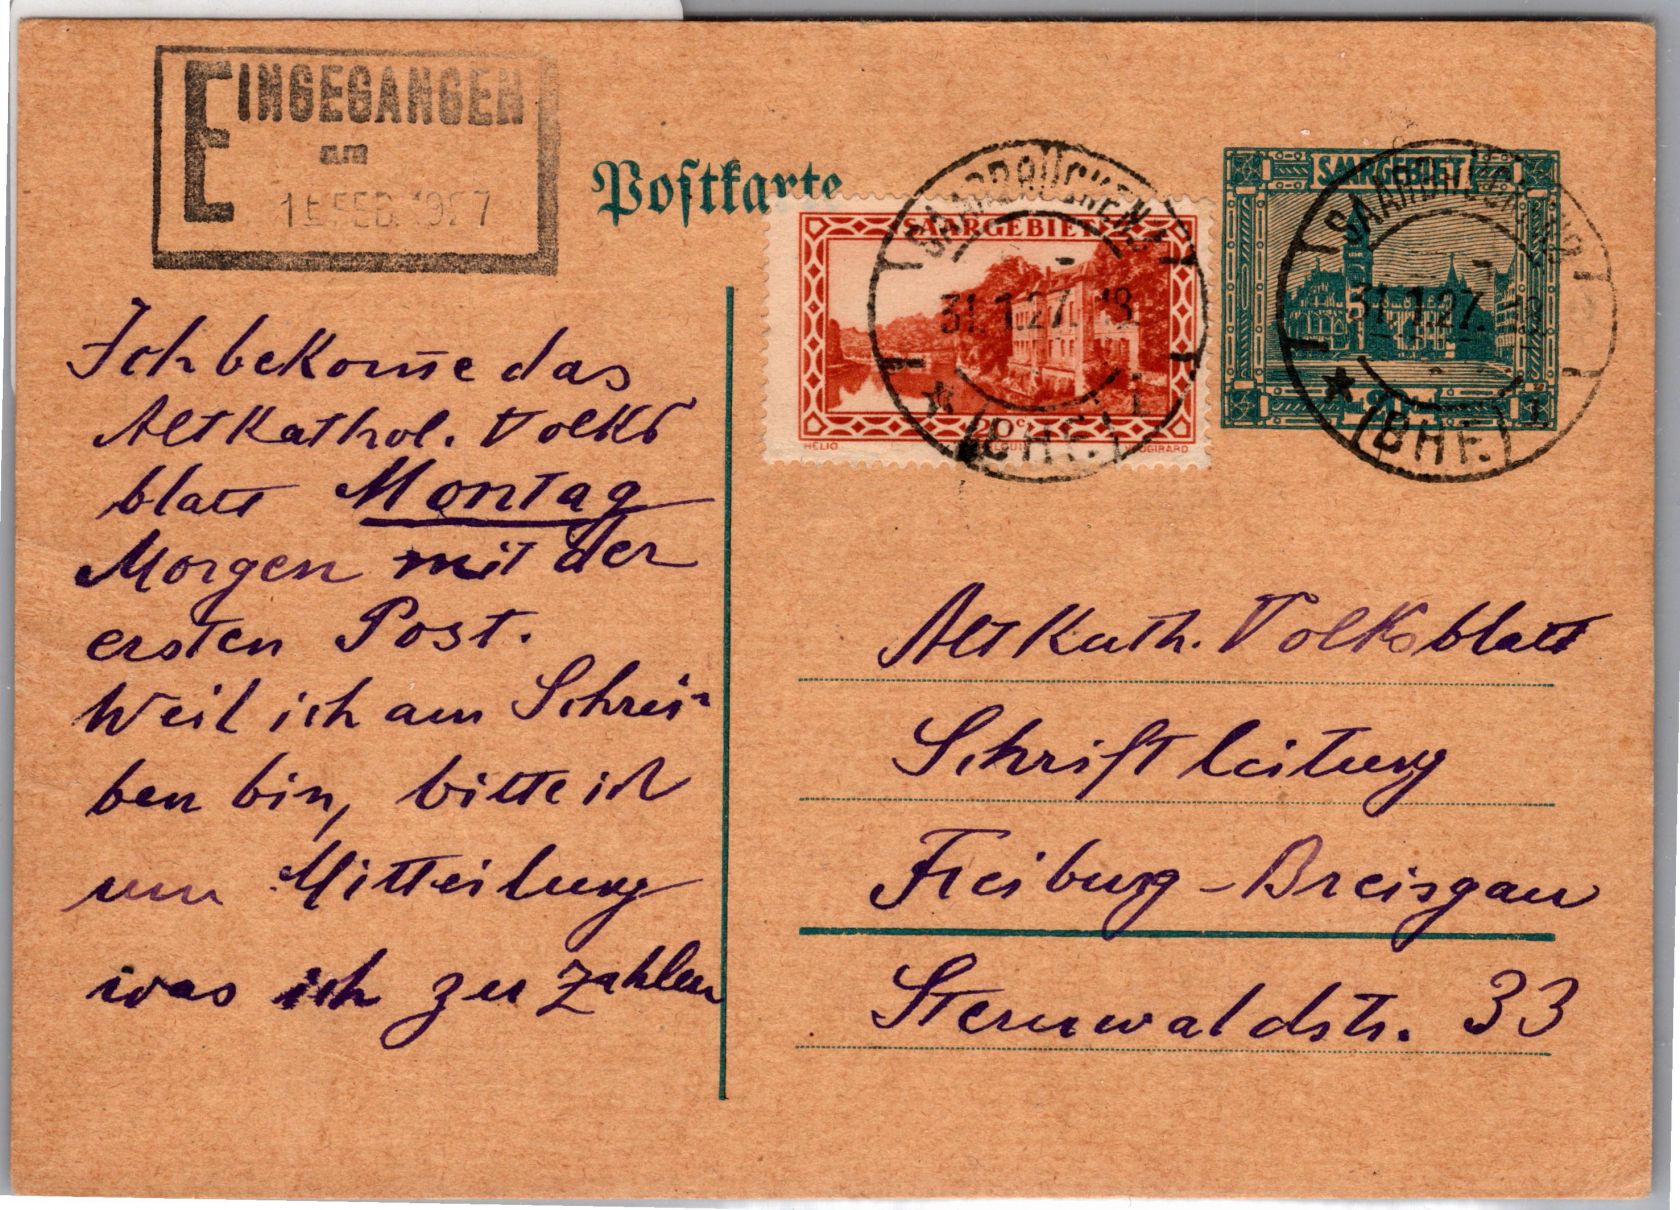 EINGEGANGEN
am
15 FEB. 1927
Postkarte
SAARGEBIET
HELIO
SAARBRÜCKEN
31.1.27. 18
(BHF.)
SAARGEBIET
SAARBRÜCKEN
31.1.27. 18
(BHF.)
Ich bekom̄e das
AltKathol. Volks
blatt Montag
Morgen mit der
ersten Post.
Weil ich am Schrei-
ben bin, bitte ich
um Mitteilung
was ich zu zahlen
AltKath. Volksblatt
Schriftleitung
Freiburg - Breisgau
Sternwaldstr. 33